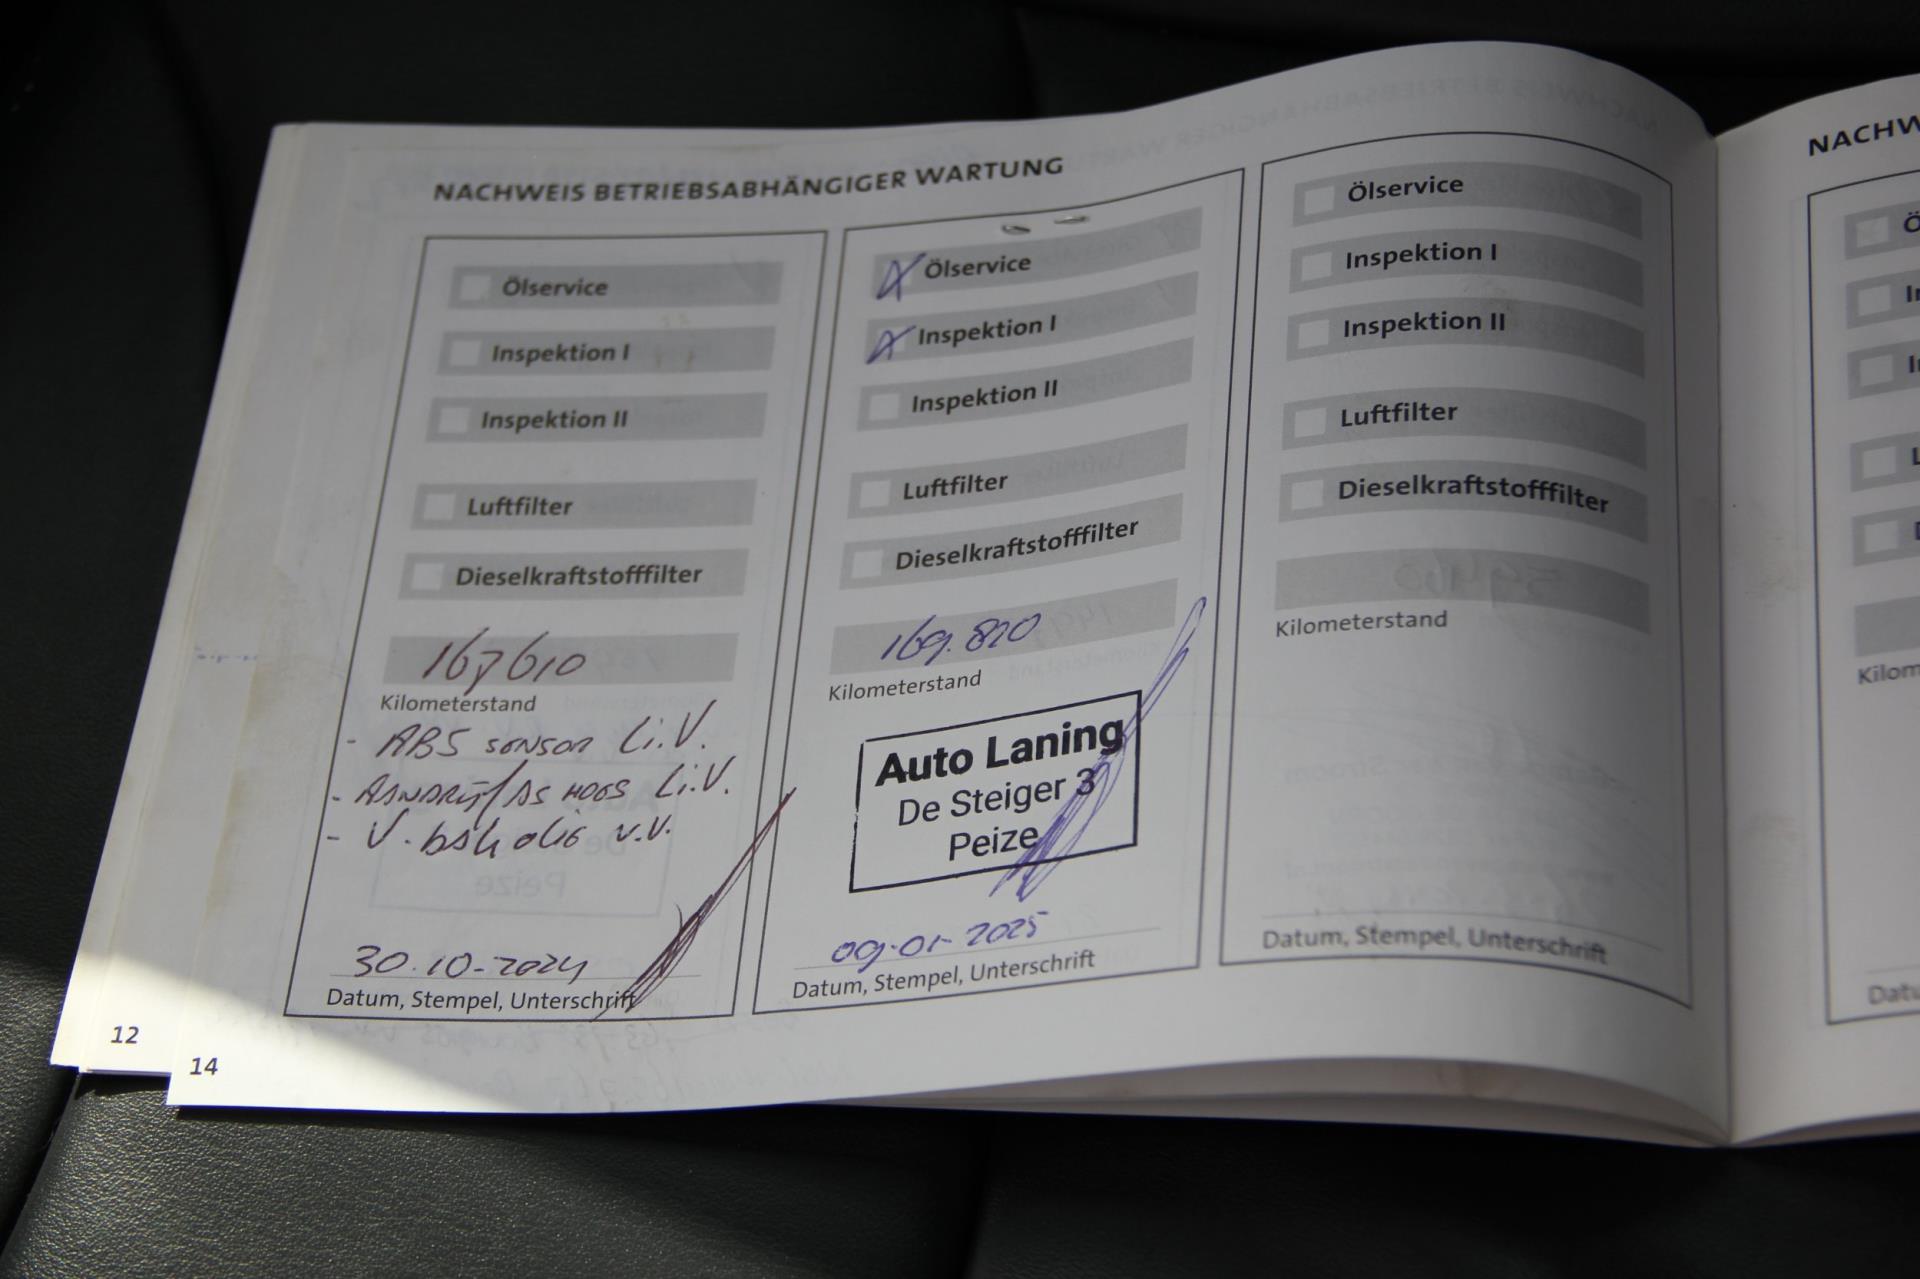 NACHWEIS BETRIEBSABHÄNGIGER WARTUNG
Ölservice
Inspektion I
Inspektion II
Luftfilter
Dieselkraftstofffilter
167610
Kilometerstand
- ABS SENSOR L.V.
- AANDRIJFAS HOES L.V.
- V. olie V.V.
30.10-2024
Datum, Stempel, Unterschrift
Ölservice
Inspektion I
Inspektion II
Luftfilter
Dieselkraftstofffilter
169.820
Kilometerstand
Auto Laning
De Steiger 3
Peize
09-01-2025
Datum, Stempel, Unterschrift
Ölservice
Inspektion I
Inspektion II
Luftfilter
Dieselkraftstofffilter
Kilometerstand
Datum, Stempel, Unterschrift
12
14
NACHW
Kilom
Datu